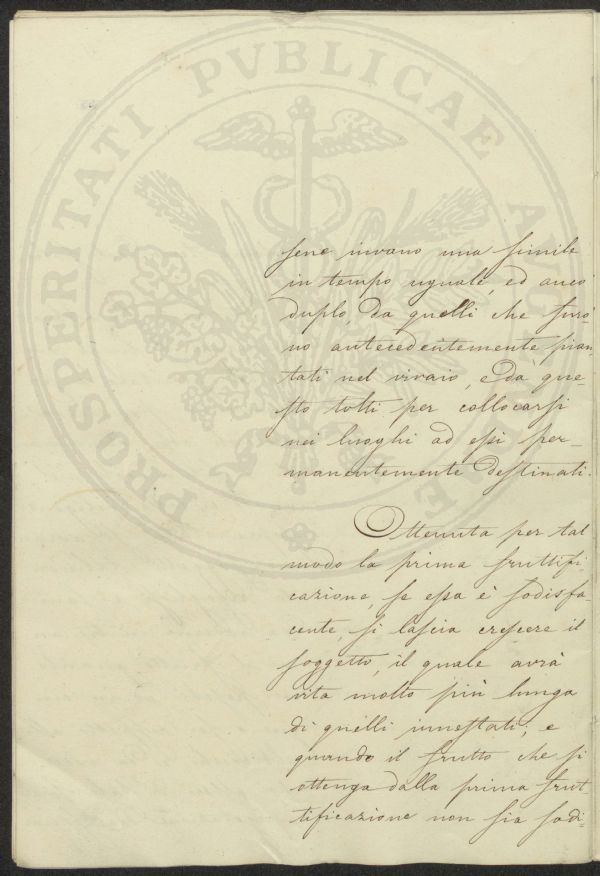 PROSPERITATI PVBLICAE AVGENDAE
sene invano una simile
in tempo uguale, ed anco
duplo, da quelli che furo-
no antecedentemente pian
tati nel vivaio, e da que-
sto tolti per collocarsi
nei luoghi ad essi per-
manentemente destinati.
Ottenuta per tal
modo la prima fruttifi
cazione, se essa è sodisfa-
cente, si lascia crescere il
soggetto, il quale avrà
vita molto più lunga
di quelli innestati; e
quando il frutto che si
ottenga dalla prima frut
tificazione non sia sodi-